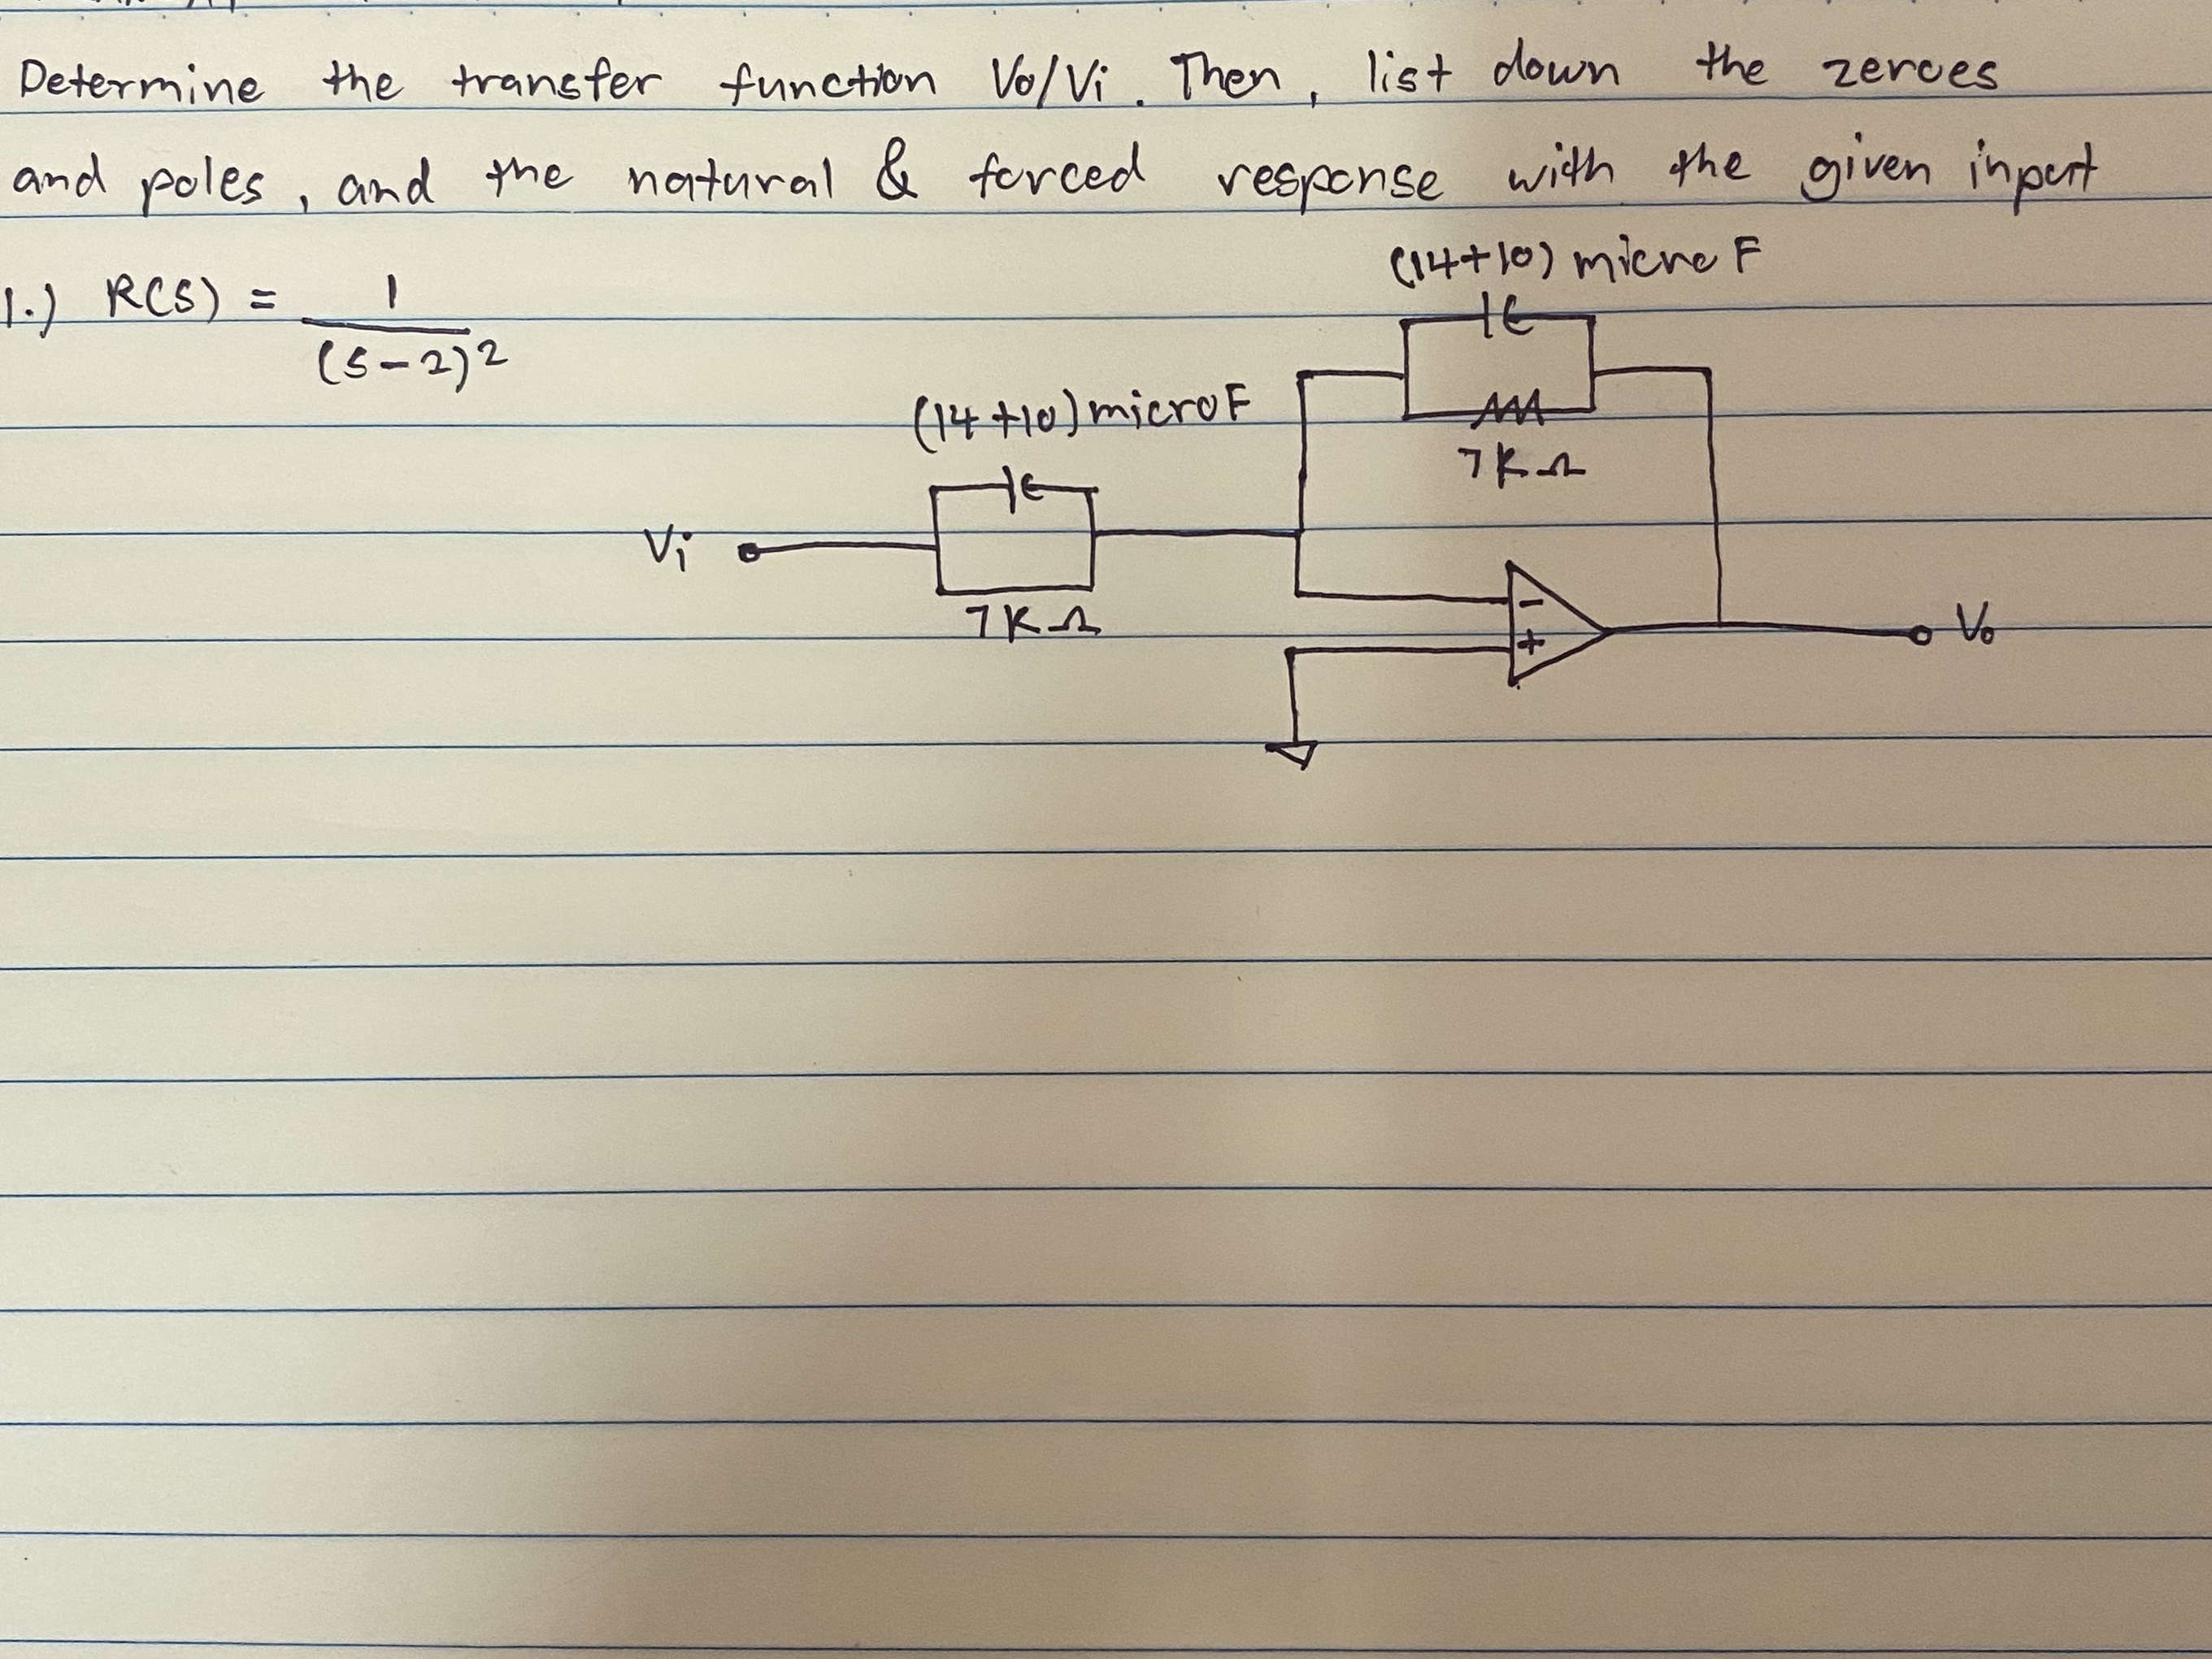 Determine the transfer function Vo/Vi. Then, list down the zeroes
and poles, and the natural & forced response with the given input
1.) R(S) = 1 / (s-2)²
(14+10) micro F
7KΩ
(14+10) micro F
7KΩ
Vi
-
+
Vo